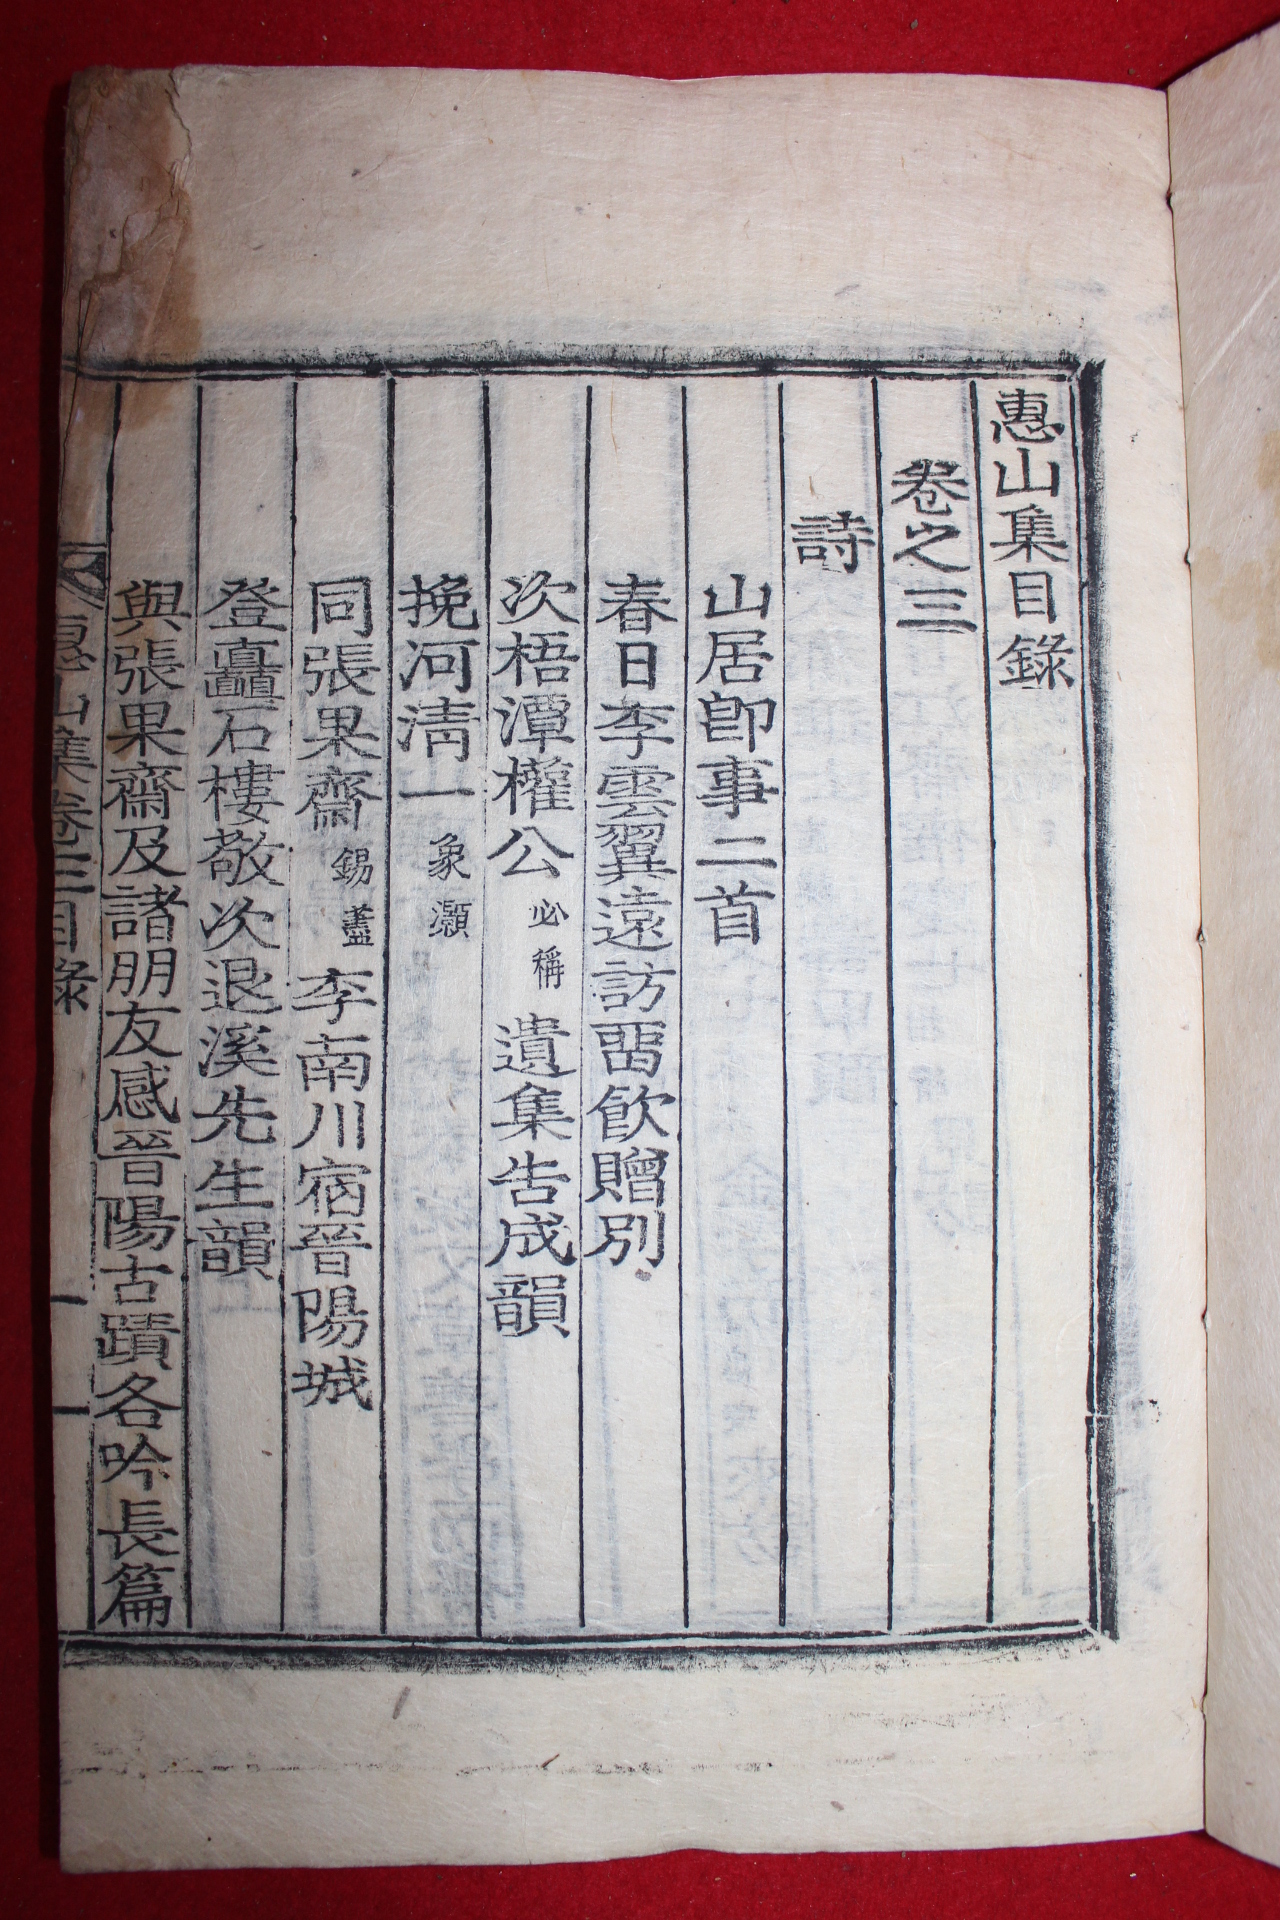 惠山集目錄
卷之三
詩
山居卽事二首
春日李雲翼遠訪畱飮贈別
次梧潭權公必稱遺集告成韻
挽河淸一象灝
同張果齋錫藎李南川宿晉陽城
登矗石樓敬次退溪先生韻
與張果齋及諸朋友感晉陽古蹟各吟長篇
惠山集卷三目錄 一